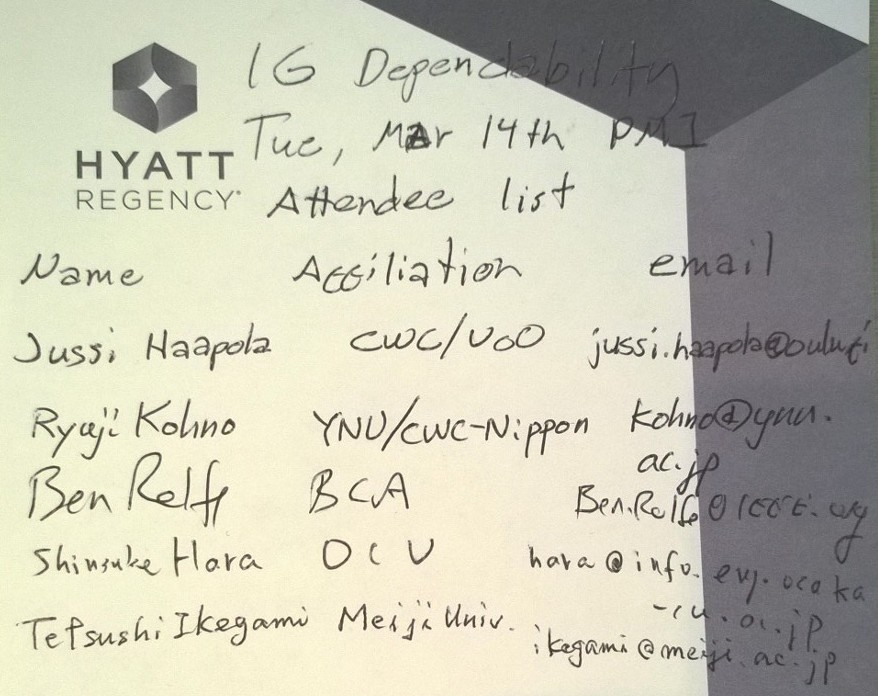 IG Dependability
Tue, Mar 14th PM1
HYATT
REGENCY
Attendee list
Name Affiliation email
Jussi Haapola CWC/UoO jussi.haapola@oulu.fi
Ryuji Kohno YNU/CWC-Nippon kohno@ynu.
ac.jp
Ben Rolfe BCA Ben.Rolfe@IEEE.org
Shinsuke Hara OCU hara@info.eng.osaka
-cu.ac.jp
Tetsushi Ikegami Meiji Univ. ikegami@meiji.ac.jp